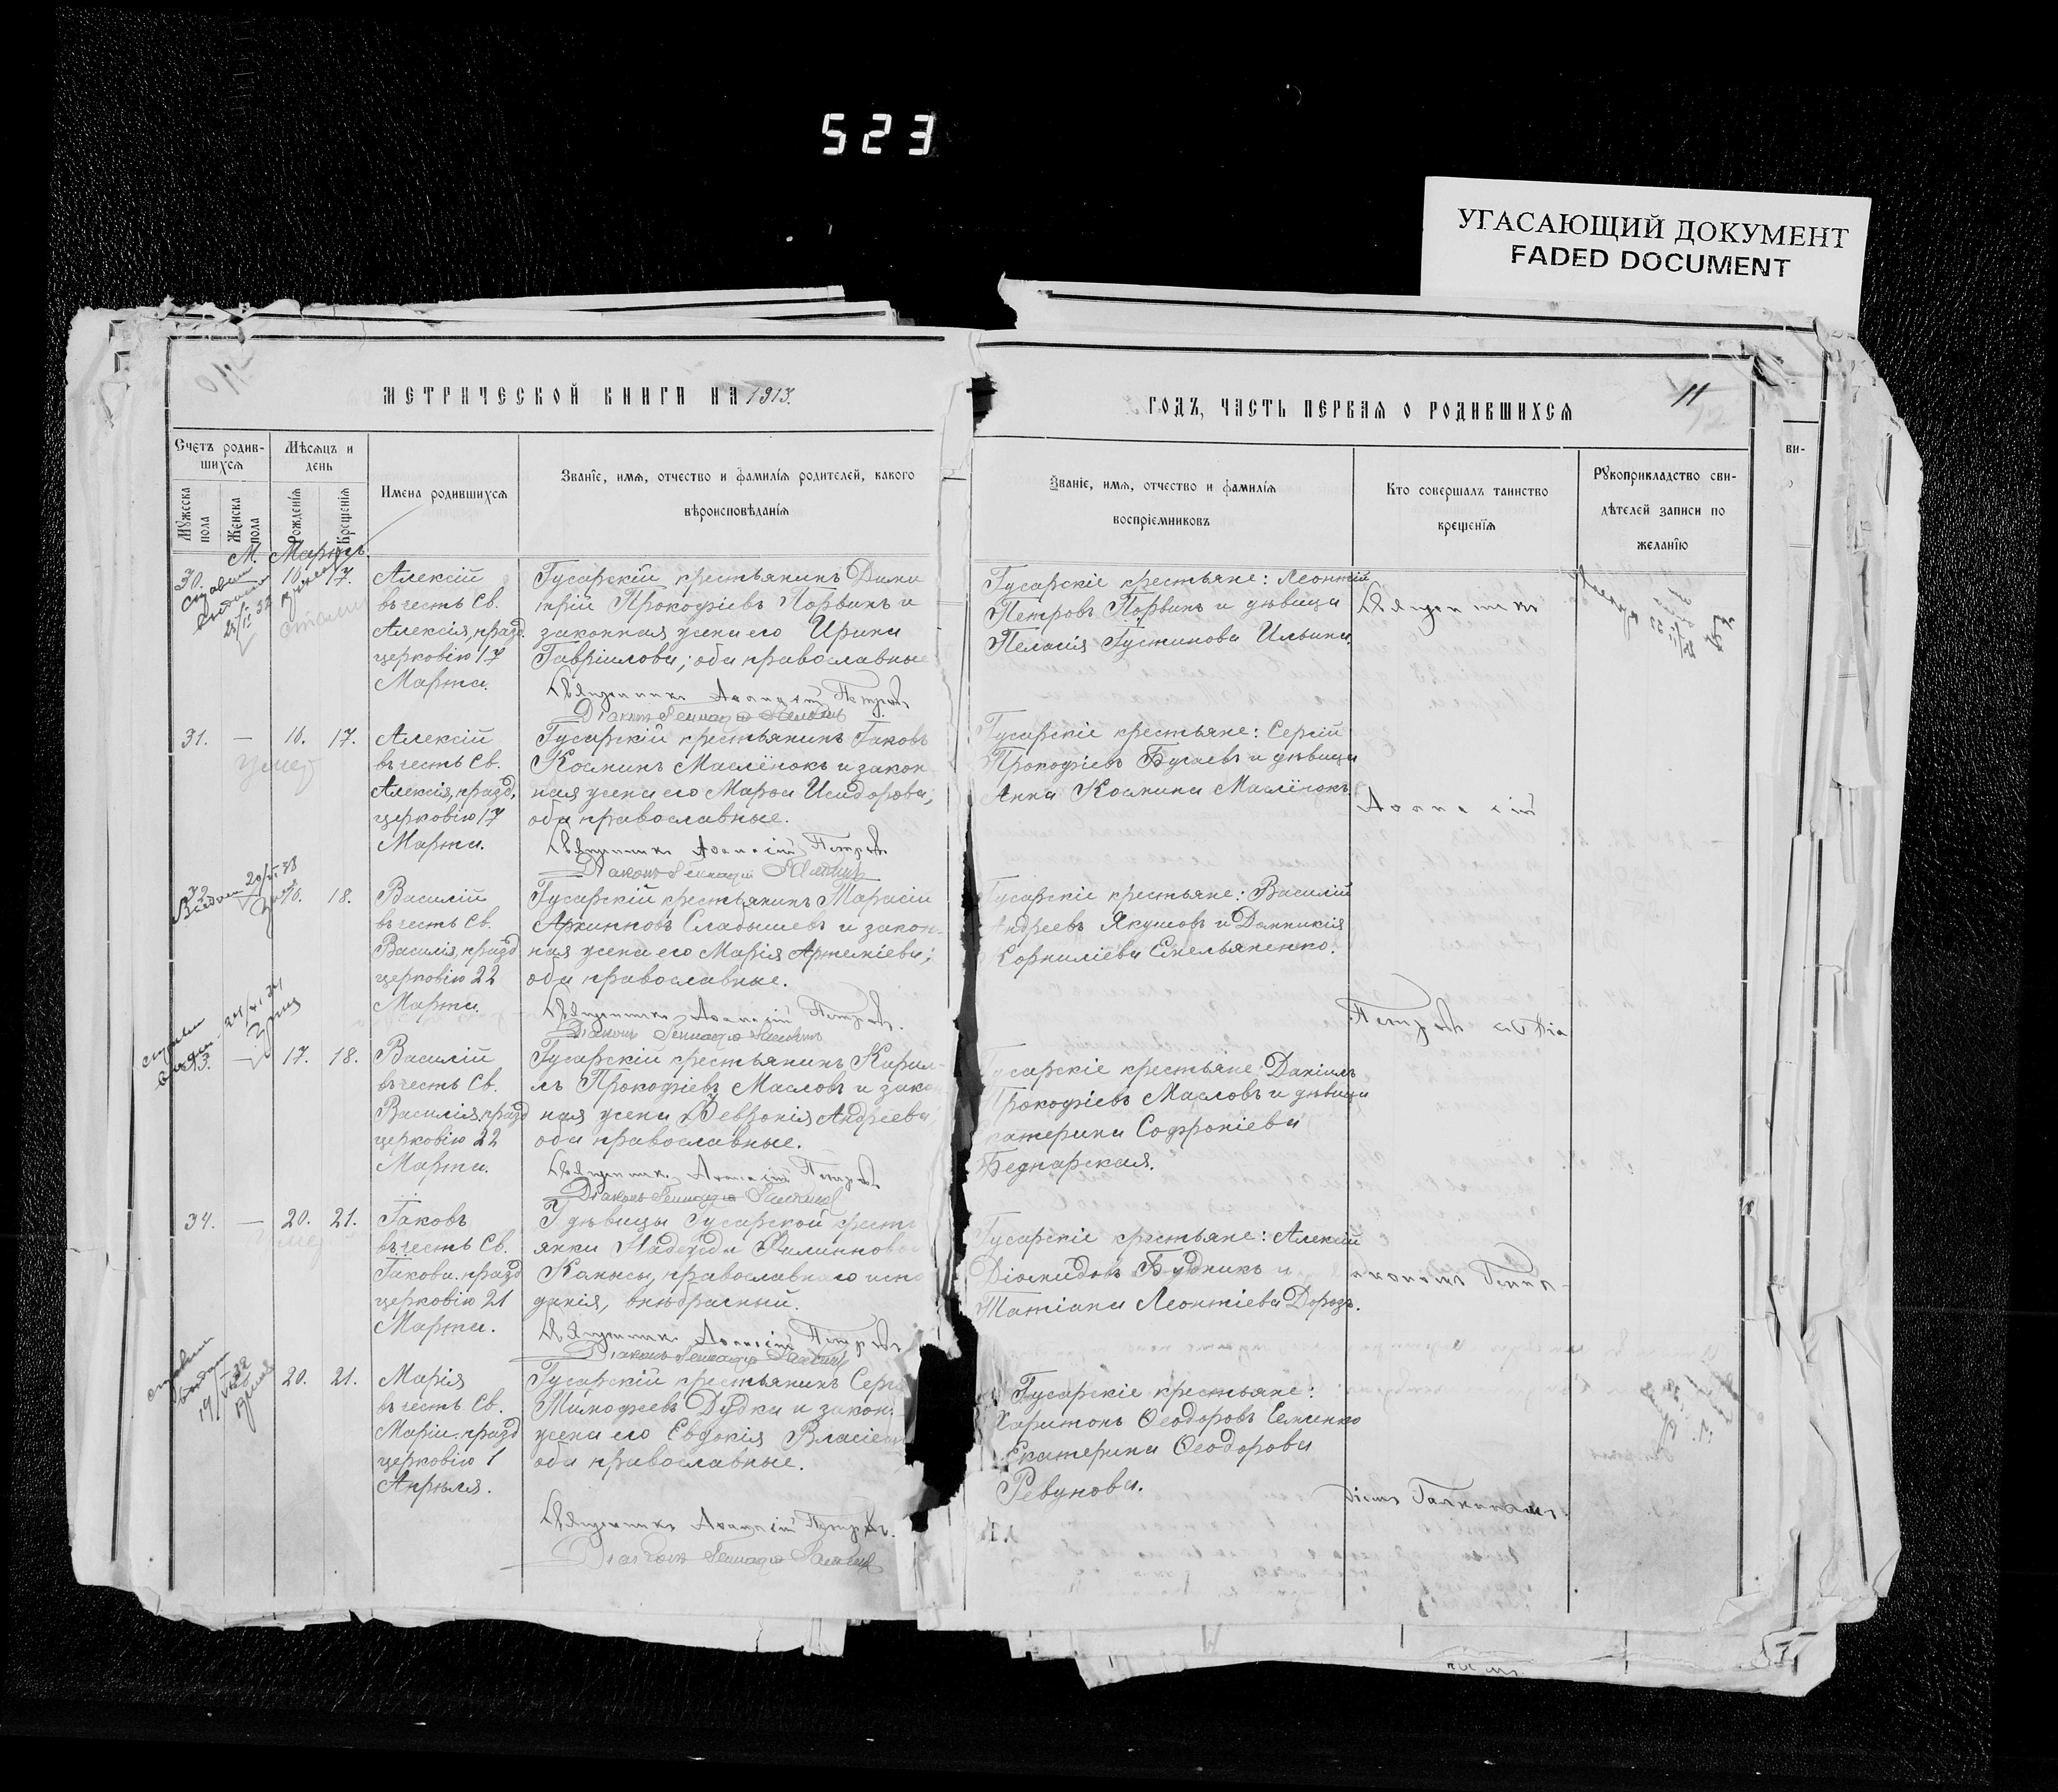 523
УГАСАЮЩИЙ ДОКУМЕНТ
FADED DOCUMENT
МЕТРИЧЕСКОЙ КНИГИ НА 1913.
Счетъ родив-
шихся
Мѣсяцъ и
день
Мужеска пола
Женска пола
Рожденія
Крещенія
Имена родившихся
Званіе, имя, отчество и фамилія родителей, какого
вѣроисповѣданія
М. Мартъ.
30. 16. 17. Алексій Гусарскій крестьянинъ Дими
въ честь Св. трій Прокофіевъ Порвинъ и
Алексія, празд. законная жена его Ирина
церковію 17 Гавріилова; оба православные
Марта.
Священникъ Аѳанасій Петровъ
Діаконъ Геннадій Галкинъ
31. — 16. 17. Алексій Гусарскій крестьянинъ Іаковъ
въ честь Св. Косминъ Маслёнокъ и закон
умер
Алексія, празд. ная жена его Марѳа Исидорова;
церковію 17 оба православные.
Марта.
Священникъ Аѳанасій Петровъ
Діаконъ Геннадій Галкинъ
32. — 16. 18. Василій Гусарскій крестьянинъ Тарасій
въ честь Св. Архипповъ Сладышевъ и закон-
Василія, празд ная жена его Марія Артеміева;
церковію 22 оба православные.
Марта.
Священникъ Аѳанасій Петровъ.
Діаконъ Геннадій Галкинъ
33. — 17. 18. Василій Гусарскій крестьянинъ Кирил-
въ честь Св. лъ Прокофіевъ Масловъ и зако
Василія, празд ная жена Ѳевронія Андреева
церковію 22 оба православные.
Марта.
Священникъ Аѳанасій Петровъ
Діаконъ Геннадій Галкинъ
34. — 20. 21. Іаковъ У дѣвицы Гусарской крестъ
въ честь Св. янки Надежды Филиппово
умер
Іакова. празд Канысы, православнаго испо
церковію 21 данія, внѣбрачный.
Марта.
Священникъ Аѳанасій Петровъ
Діаконъ Геннадій Галкинъ
20. 21. Марія Гусарскій крестьянинъ Серг
въ честь Св. Тимофеевъ Дудка и закон.
Маріи. празд жена его Евдокія Власіева
церковію 1 оба православные.
Апрѣля.
Священникъ Аѳанасій Петровъ.
Діаконъ Геннадій Галкинъ
ГОДЪ, ЧАСТЬ ПЕРВАЯ О РОДИВШИХСЯ
11
Званіе, имя, отчество и фамилія
воспріемниковъ
Кто совершалъ таинство
крещенія
Рукоприкладство сви-
дѣтелей записи по
желанію
ви-
Гусарскіе крестьяне: Леонтій
Петровъ Порвинъ и дѣвица
Пелагія Густинова Ильина.
Священникъ
Гусарскіе крестьяне: Сергій
Прокофіевъ Бугаевъ и дѣвица
Анна Космина Маслёнокъ.
Аѳанасій
Гусарскіе крестьяне: Василій
Андреевъ Якушовъ и Домникія
Корниліева Емельяненко.
Петровъ съ Діа
Гусарскіе крестьяне: Даніилъ
Прокофіевъ Масловъ и дѣвица
Екатерина Софроніева
Беднарская.
Гусарскіе крестьяне: Алексій
Діомидовъ Будникъ и
Татіана Леонтіева Дорозъ.
акономъ Генна-
Гусарскіе крестьяне:
Харитонъ Ѳеодоровъ Еменко
Екатерина Ѳеодорова
Ревунова.
діемъ Галкинымъ.